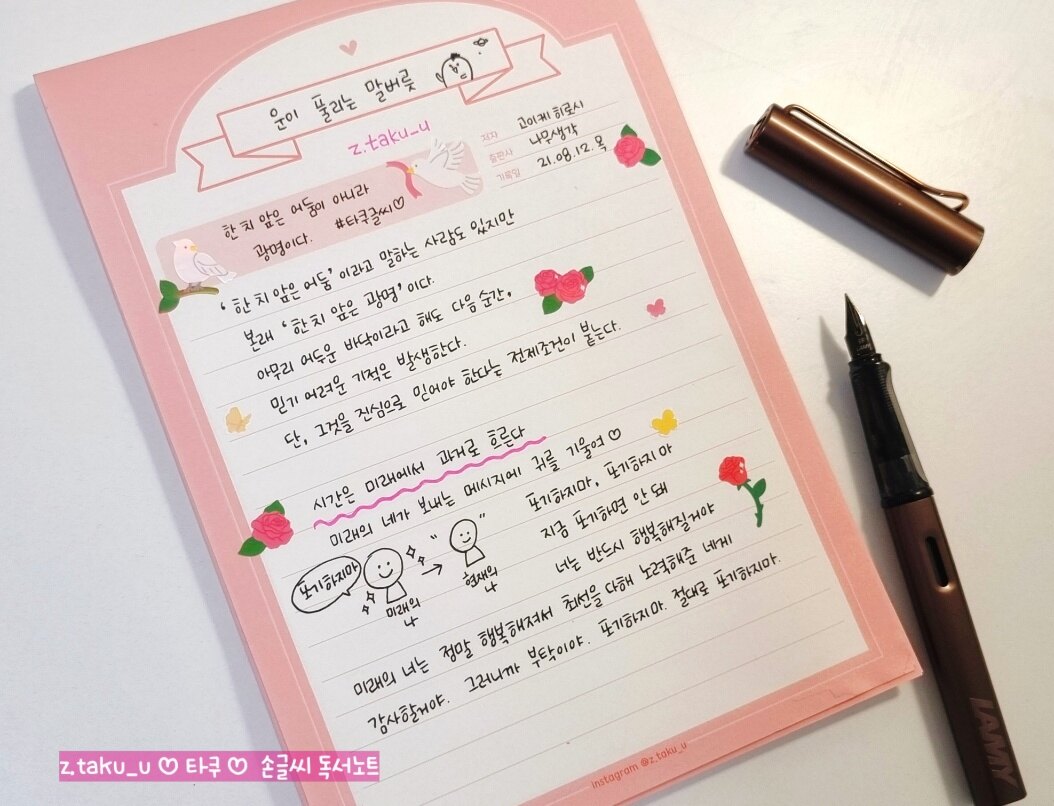 운이 풀리는 말버릇
z.taku_u
저자 고이케 히로시
출판사 나무생각
기록일 21.08.12.목
한 치 앞은 어둠이 아니라
광명이다. #타쿠글씨♡
'한 치 앞은 어둠'이라고 말하는 사람도 있지만
본래 '한 치 앞은 광명'이다.
아무리 어두운 바닥이라고 해도 다음 순간,
믿기 어려운 기적은 발생한다.
단, 그것을 진심으로 믿어야 한다는 전제조건이 붙는다.
시간은 미래에서 과거로 흐른다
미래의 네가 보내는 메시지에 귀를 기울여♡
포기하지마
미래의
나
현재의
나
포기하지마, 포기하지마
지금 포기하면 안 돼
너는 반드시 행복해질거야
미래의 너는 정말 행복해져서 최선을 다해 노력해준 네게
감사할거야. 그러니까 부탁이야. 포기하지마. 절대로 포기하지마.
instagram @z.taku_u
LAMY
z.taku_u ♡ 타쿠 ♡ 손글씨 독서노트